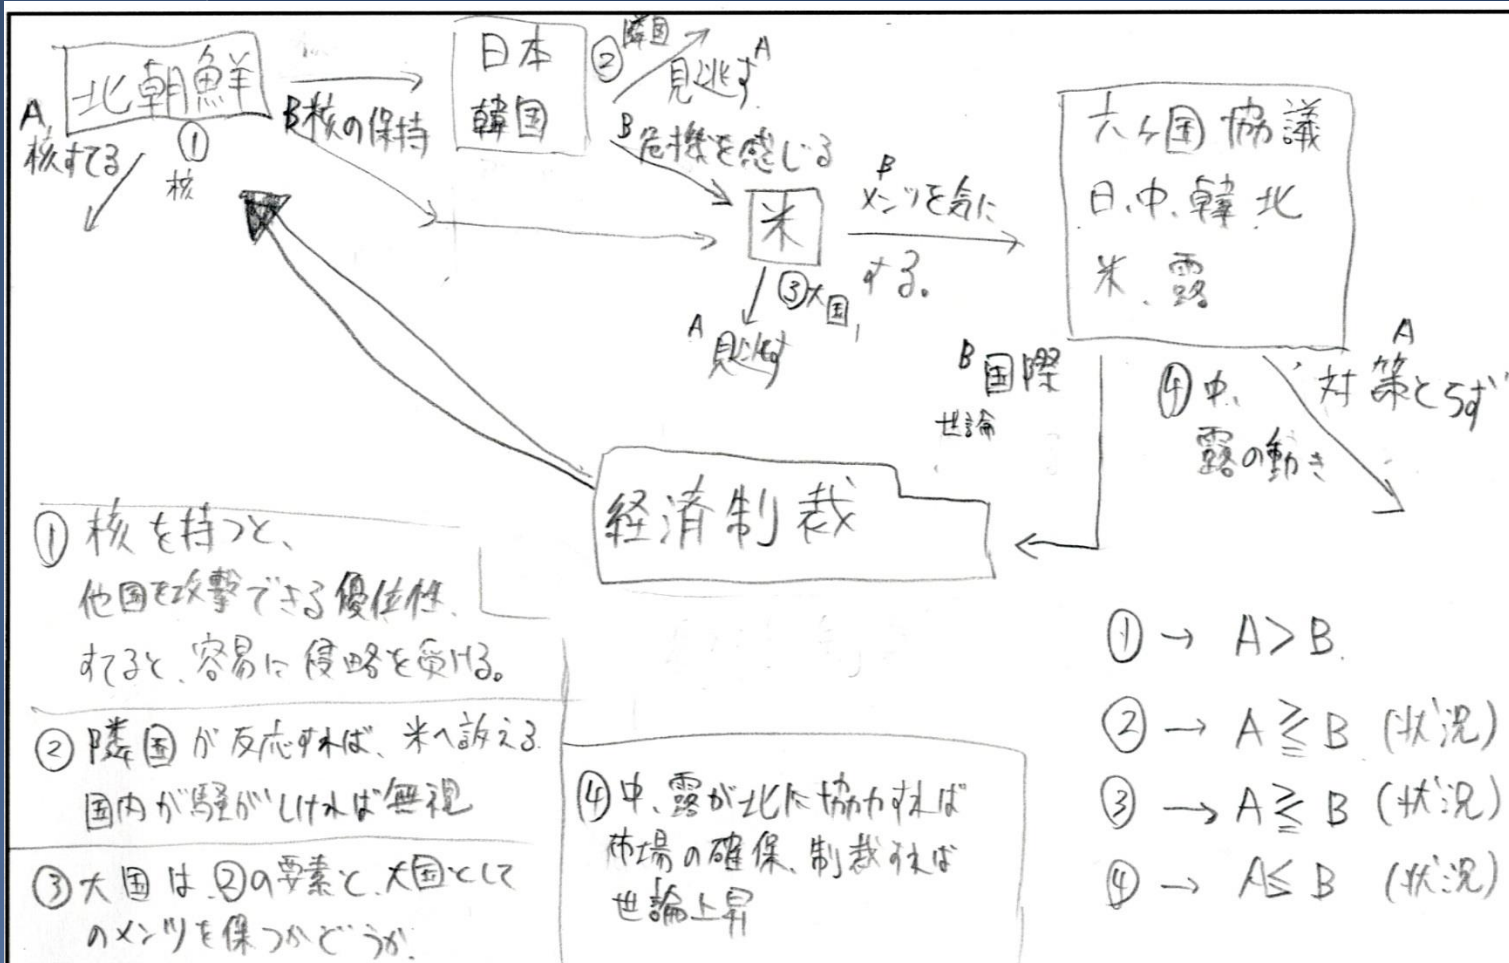 北朝鮮
A
核すてる
①
核
B核の保持
日本
韓国
②
隣国
見逃す A
B
危機を感じる
米
③大国
A
見逃す
B
メンツを気に
する。
六ヶ国協議
日、中、韓 北
米、露
B 国際
世論
④中、
露の動き
A
対策とらず
経済制裁
①核を持つと、
他国を攻撃できる優位性、
すてると、容易に侵略を受ける。
②隣国が反応すれば、米へ訴える
国内が騒がしければ無視
③大国は、②の要素と、大国として
のメンツを保つかどうか。
④中、露が北に協力すれば
市場の確保、制裁すれば
世論上昇
①→ A>B.
②→ A≧B (状況)
③→ A≧B (状況)
④→ A≦B (状況)